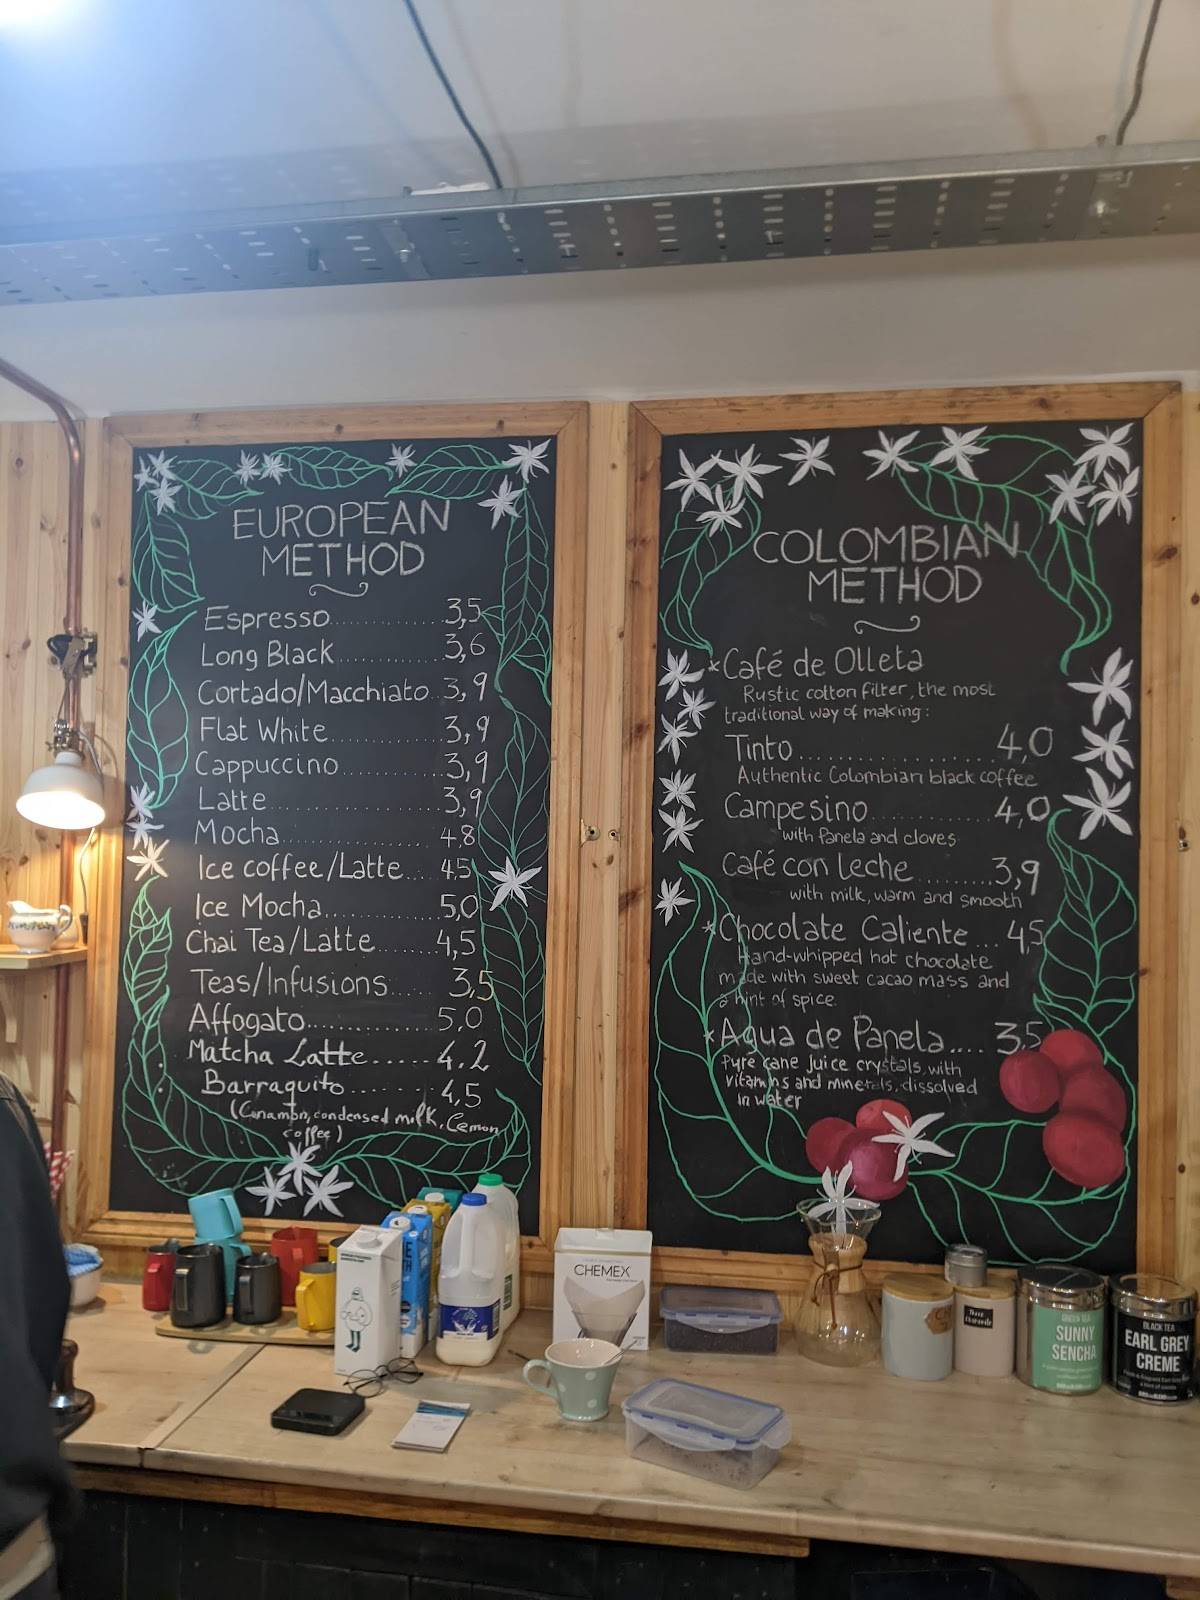 EUROPEAN
METHOD
Espresso.............. 3,5
Long Black............. 3,6
Cortado/Macchiato.. 3,9
Flat White............. 3,9
Cappuccino............ 3,9
Latte.................... 3,9
Mocha................... 4,8
Ice coffee/Latte.... 4,5
Ice Mocha............. 5,0
Chai Tea/Latte....... 4,5
Teas/Infusions...... 3,5
Affogato.............. 5,0
Matcha Latte..... 4.2
Barraquito........ 4,5
(Cinamon, condensed milk, Lemon
coffee)
COLOMBIAN
METHOD
*Café de Olleta
Rustic cotton filter, the most
traditional way of making:
Tinto..................... 4,0
Authentic Colombian black coffee
Campesino.............. 4,0
with Panela and cloves
Café con leche......... 3,9
with milk, warm and smooth
*Chocolate Caliente... 4,5
Hand-whipped hot chocolate
made with sweet cacao mass and
a hint of spice
*Agua de Panela.... 3,5
Pure cane juice crystals, with
vitamins and minerals, dissolved
in water
CHEMEX
GREEN TEA
SUNNY
SENCHA
BLACK TEA
EARL GREY
CREME